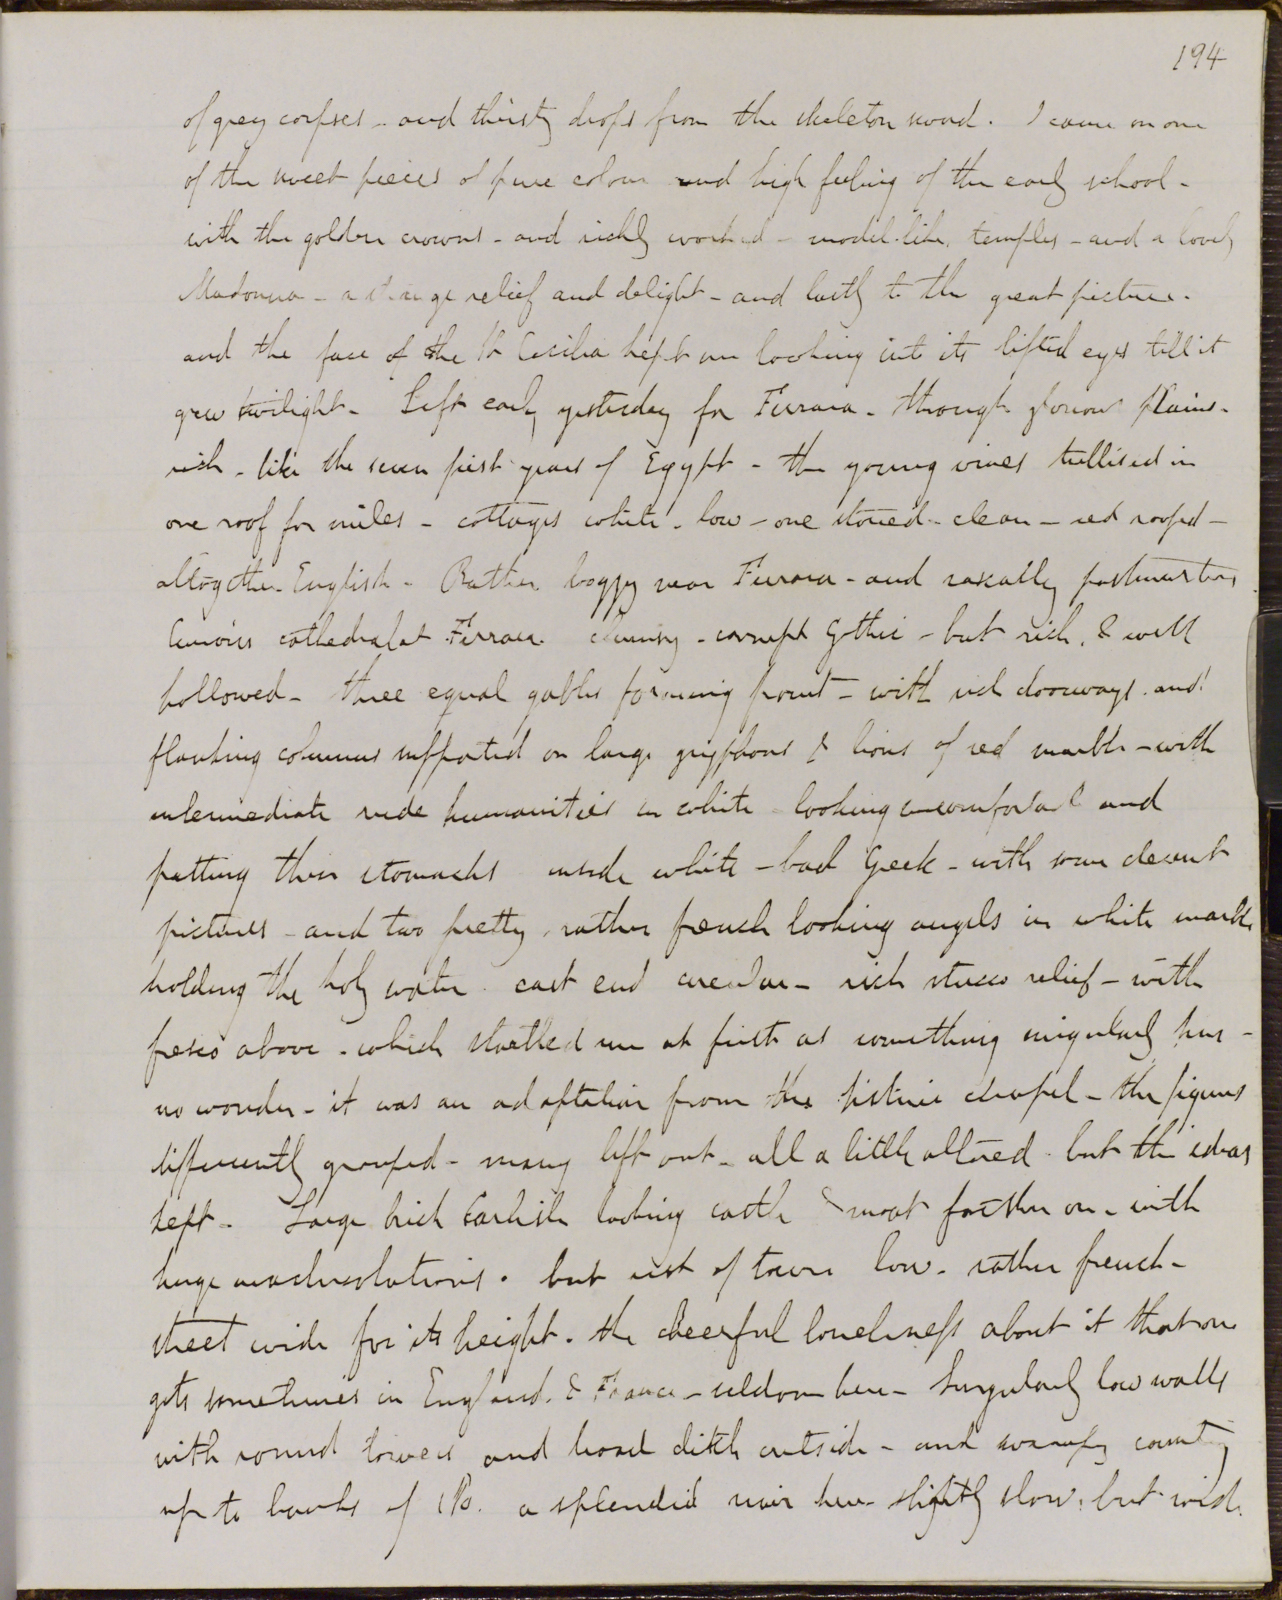 194
of grey corpses - and thirsty drops from the skeleton sword. I came on one
of the sweet pieces of pure colour and high feeling of the early school -
with the golden crowns - and richly worked - model-like, temples - and a lovely
Madonna - a strange relief and delight - and lastly to the great picture -
and the face of the St Cecilia kept me looking into its lifted eyes till it
grew twilight - Left early yesterday for Ferrara - through glorious plains -
rich - like the seven first years of Egypt - the young vines trellised in
one roof for miles - cottages white - low - one storied - clean - red roofed -
altogether English - Rather boggy near Ferrara - and rascally postmasters
Curious cathedral at Ferrara clumsy - corrupt Gothic - but rich, & well
hollowed - three equal gables forming front - with rich doorways and
flanking columns supported on large gryphons & lions of red marble - with
intermediate rude humanities in white looking uncomfortable and
patting their stomachs inside white - bad Greek - with some decent
pictures - and two pretty, rather french looking angels in white marble
holding the holy water. east end circular - rich stucco relief - with
fresco above - which startled me at first as something singularly fine -
no wonder - it was an adaptation from the sistine chapel - the figures
differently grouped - many left out - all a little altered - but the ideas
kept - Large brick Carlisle looking castle & moat farther on - with
huge machicolations. but rest of town low - rather french -
street wide for its height - the cheerful loneliness about it that one
gets sometimes in England & France - seldom here - Singularly low walls
with round towers and broad ditch outside - and swampy country
up to banks of Po. a splendid river here - slightly slow, but wide.